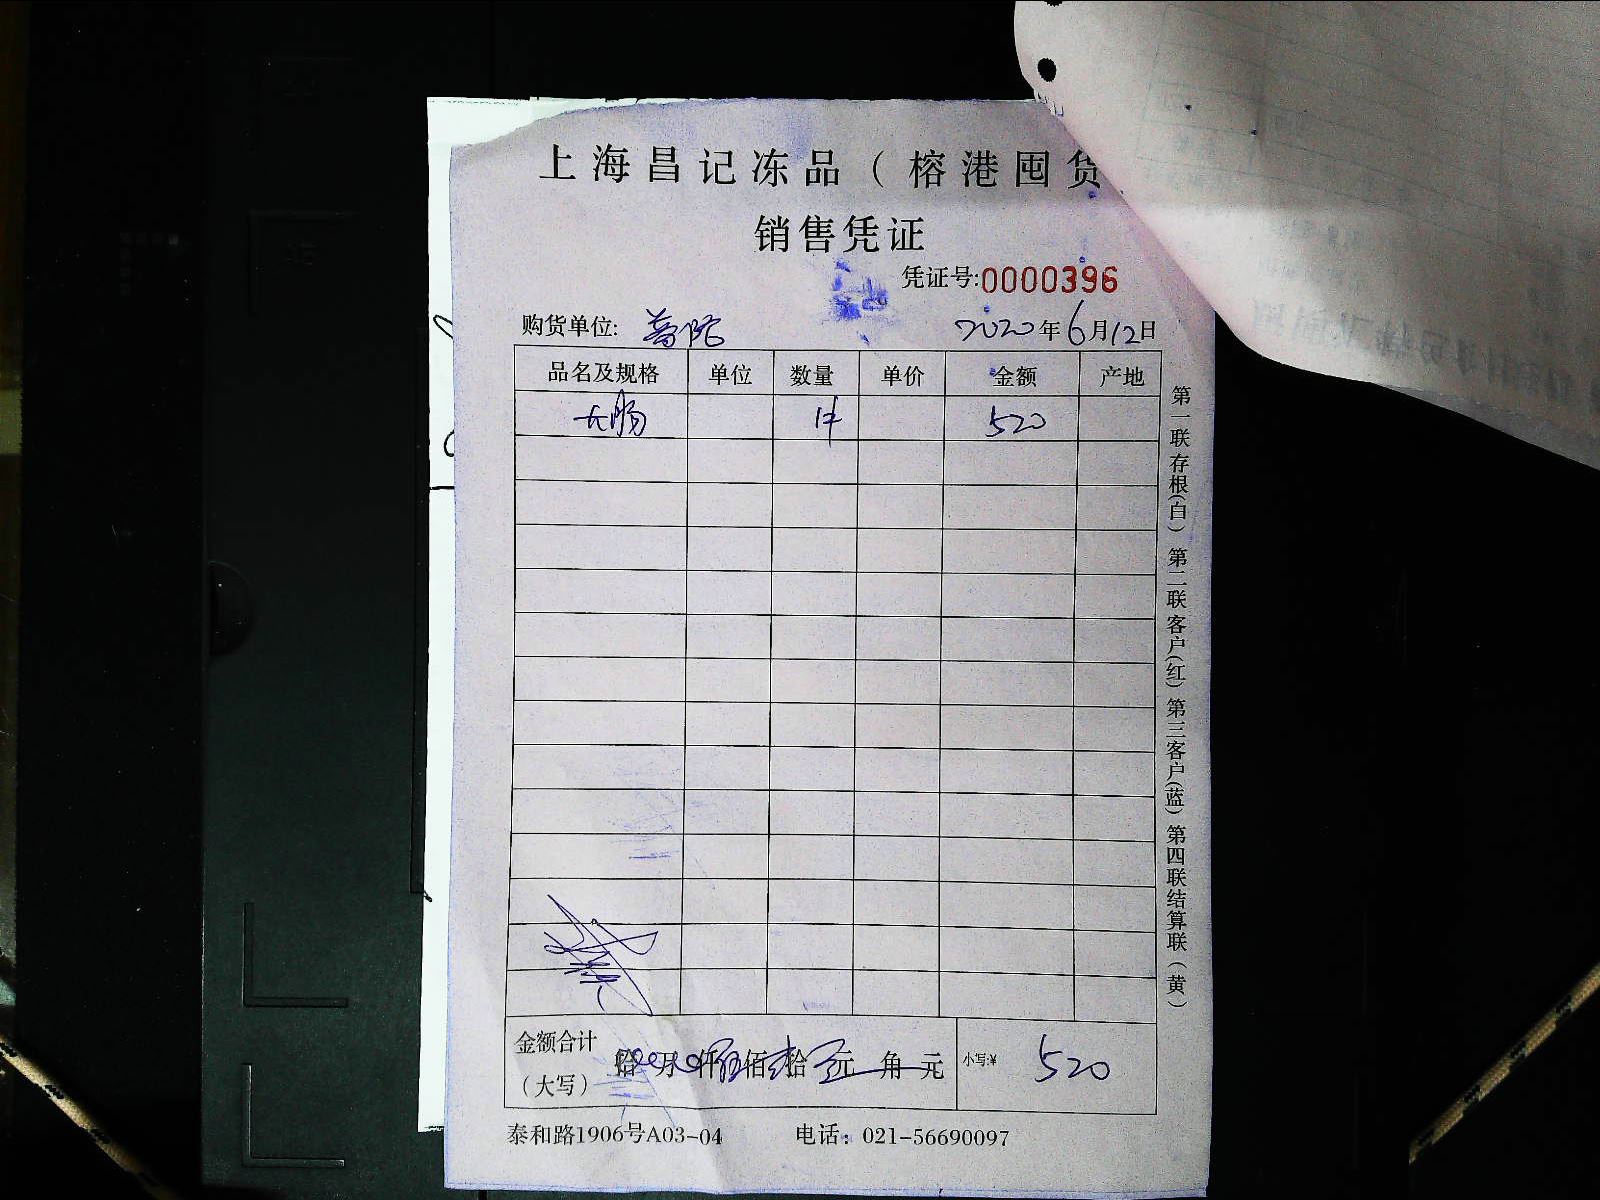 上海昌记冻品（榕港囤货
销售凭证
凭证号:0000396
购货单位: 普陀 2020年6月12日
品名及规格 单位 数量 单价 金额 产地
大肠 1件 520
金额合计（大写） 拾 万 仟 伍佰 贰拾 零元 角 元 小写:¥ 520
泰和路1906号A03-04 电话：021-56690097
第一联存根(白) 第二联客户(红) 第三客户(蓝) 第四联结算联(黄)